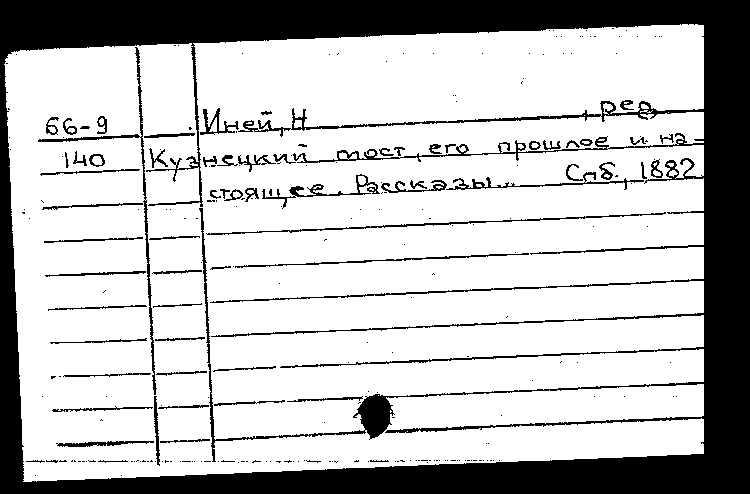 66-9 Иней, Н , ред.
140 Кузнецкий мост, его прошлое и на-
стоящее. Рассказы... Спб., 1882